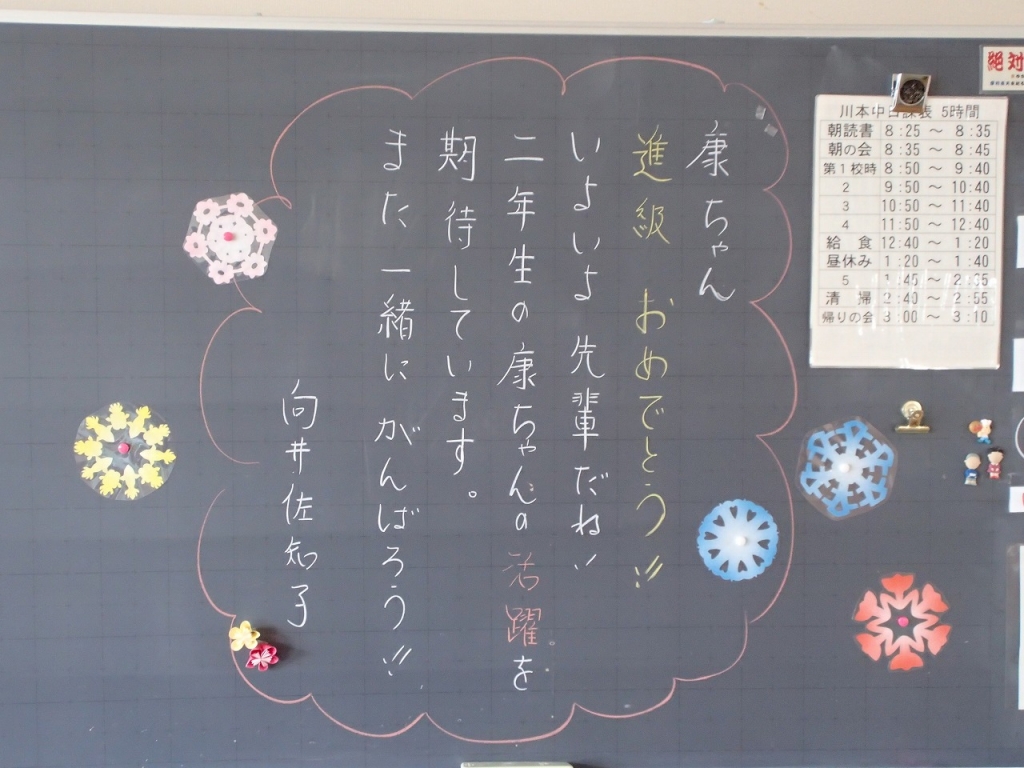 康ちゃん
進級 おめでとう!!
いよいよ 先輩だね!
二年生の康ちゃんの活躍を
期待しています。
また一緒に がんばろう!!
向井佐知子
川本中日課表 5時間
朝読書 8:25 ~ 8:35
朝の会 8:35 ~ 8:45
第1校時 8:50 ~ 9:40
2 9:50 ~ 10:40
3 10:50 ~ 11:40
4 11:50 ~ 12:40
給 食 12:40 ~ 1:20
昼休み 1:20 ~ 1:40
5 1:45 ~ 2:35
清 掃 2:40 ~ 2:55
帰りの会 3:00 ~ 3:10
絶対